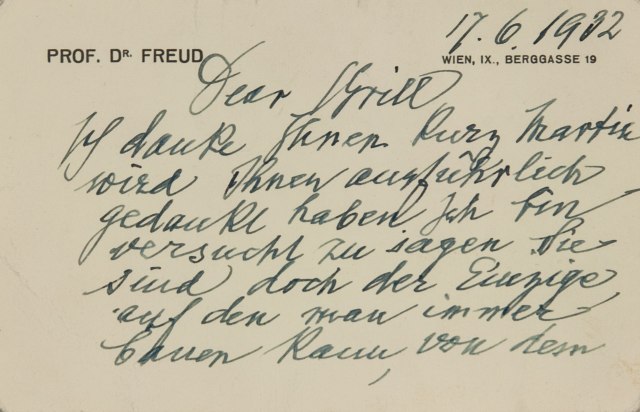 17.6.1932
PROF. DR. FREUD
WIEN, IX., BERGGASSE 19
Dear Brill
Ich danke Ihnen kurz Martin
wird Ihnen ausführlich
gedankt haben Ich bin
versucht zu sagen Sie
sind doch der Einzige
auf den man immer
bauen kann, von dem